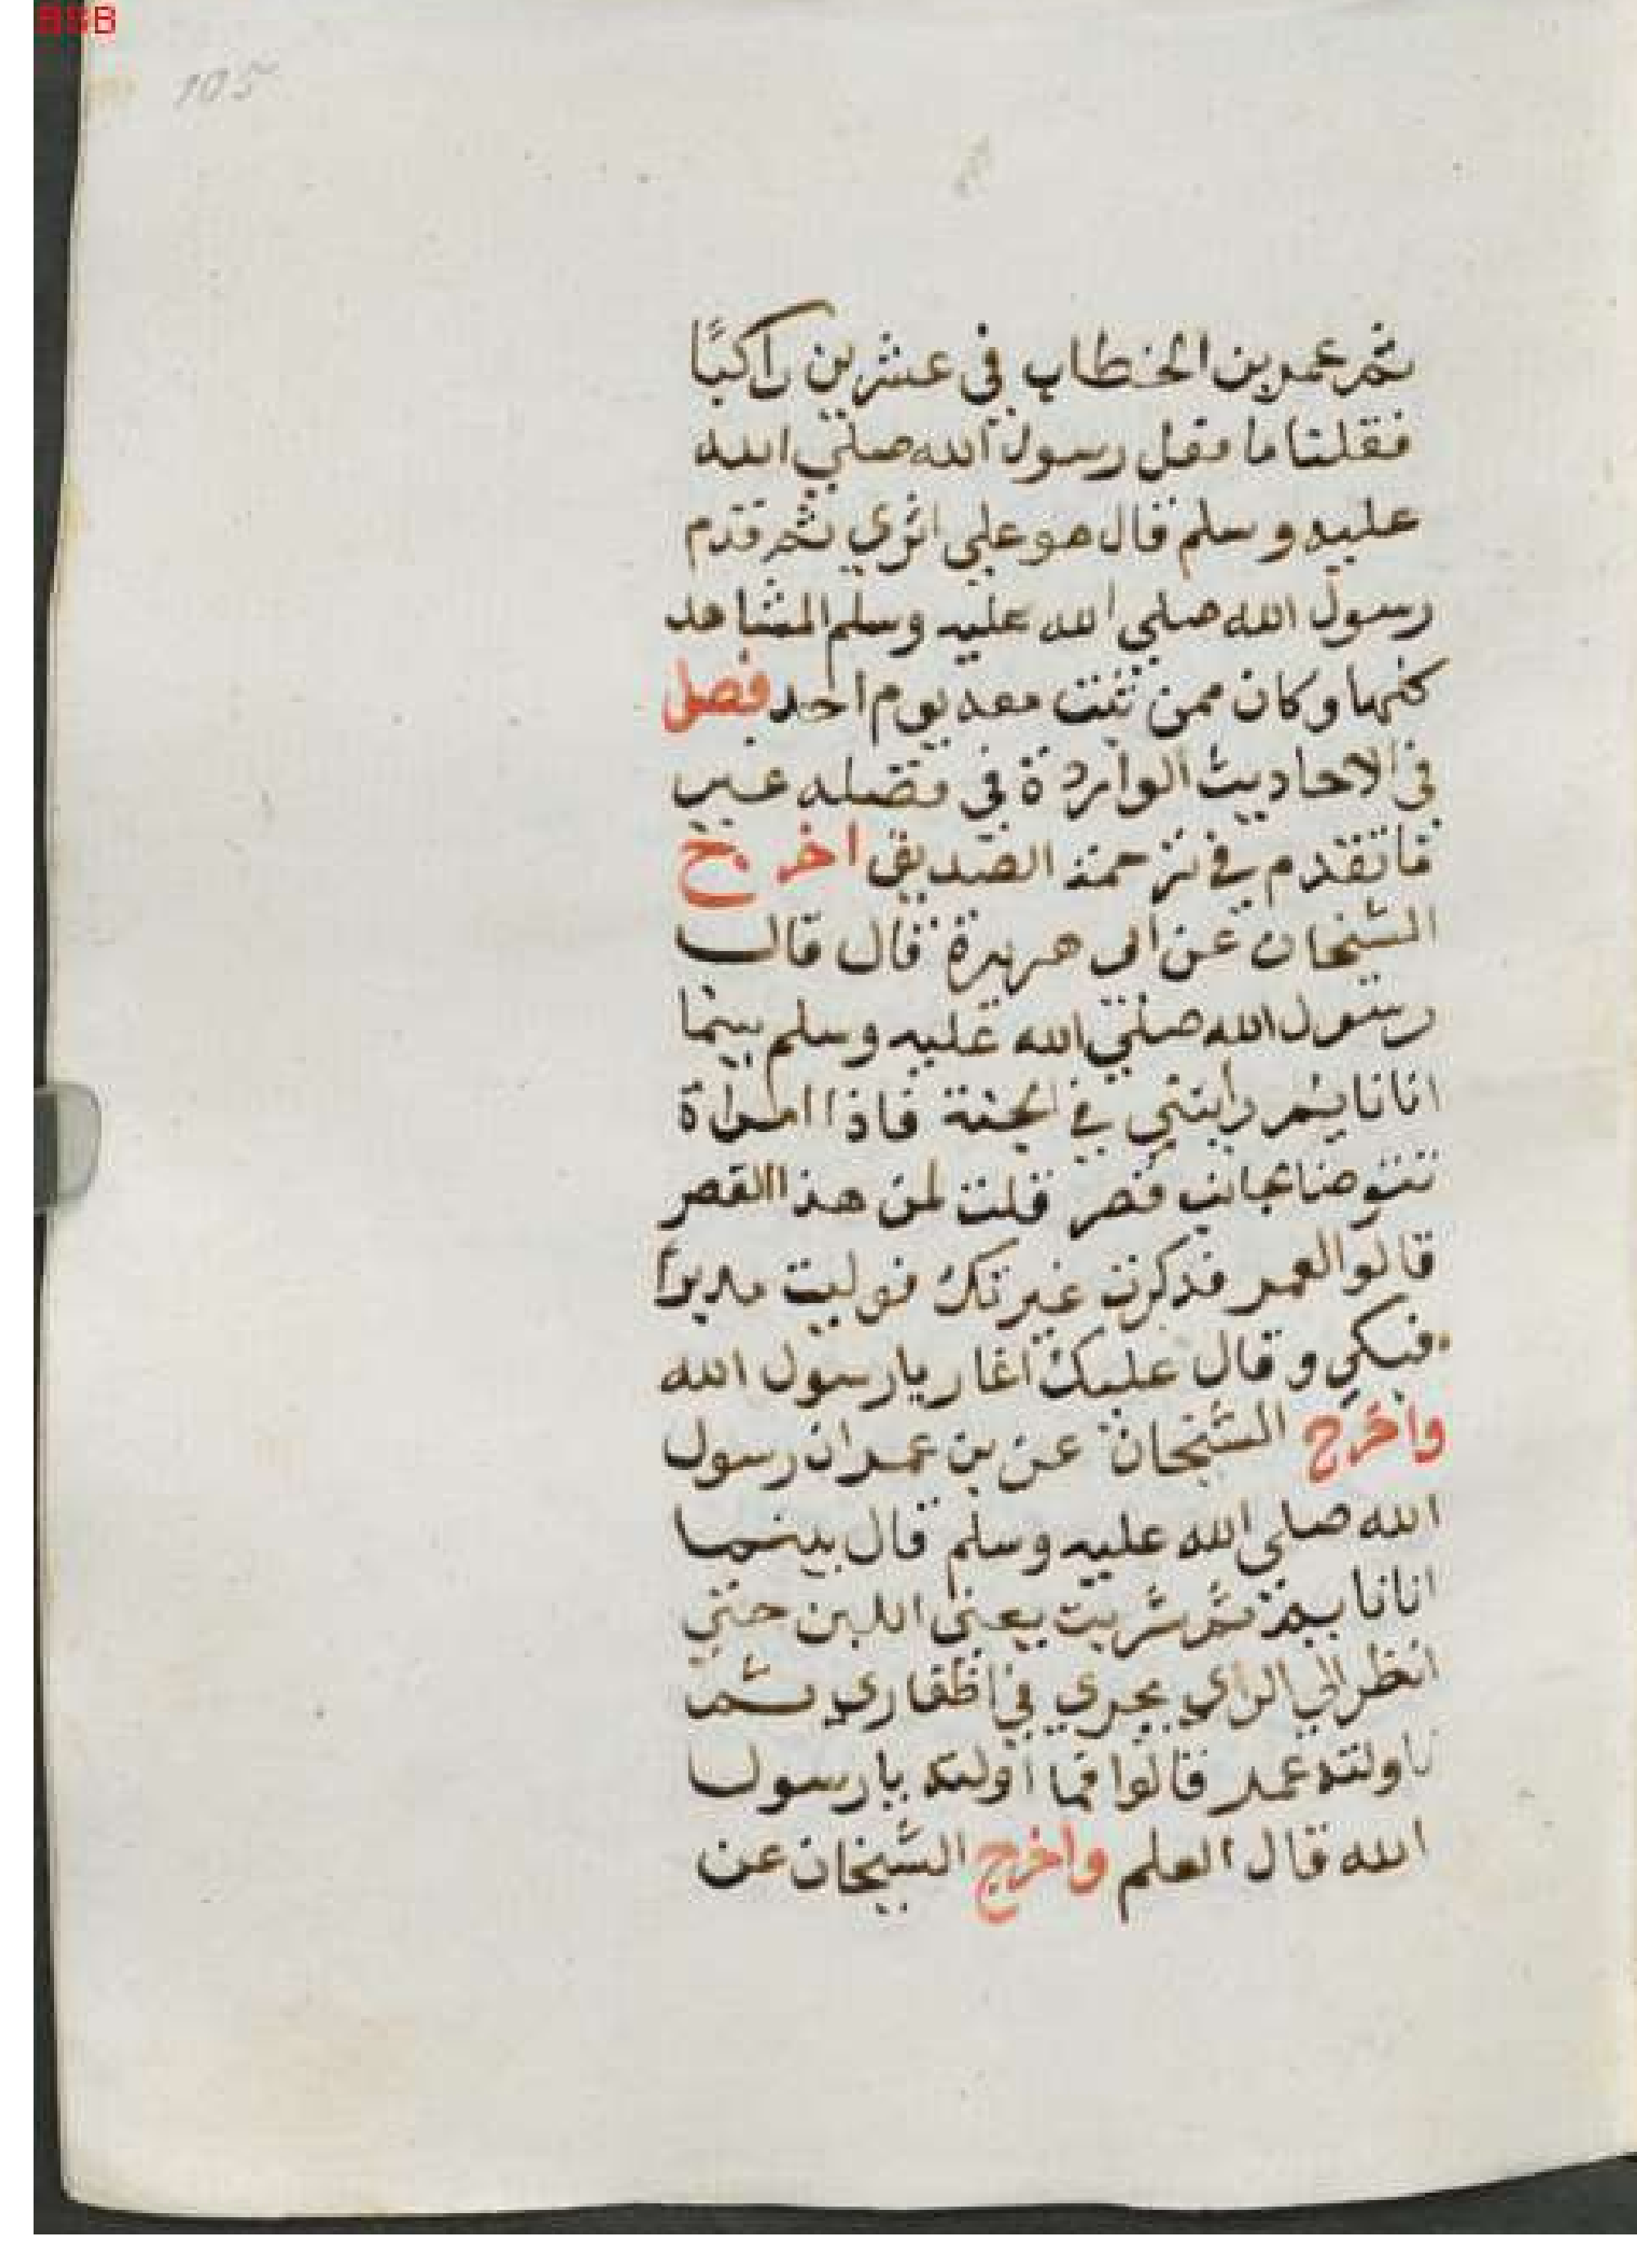 BSB
105
ثم عمر بن الخطاب في عشرين راكبًا
فقلنا ما فعل رسول الله صلي الله
عليه وسلم قال هو علي اثري ثم قدم
رسول الله صلي الله عليه وسلم المشاهد
كلها وكان ممن ثبت معه يوم احد فصل
في الاحاديث الواردة في فضله غير
ما تقدم في ترجمة الصديق اخرج
الشيخان عن ابي هريرة قال قال
رسول الله صلي الله عليه وسلم بينما
انا نايم رايتني في الجنة فاذا امراة
تتوضا بجانب قصر قلت لمن هذا القصر
قالوا لعمر فذكرت غيرتك فوليت مدبرًا
فبكي وقال عليك اغار يا رسول الله
واخرج الشيخان عن بن عمر ان رسول
الله صلي الله عليه وسلم قال بينما
انا نايم ثم شربت يعني اللبن حتي
انظر الي الراي يجري في اظفاري ثم
ناولته عمر قالوا فما اولته يا رسول
الله قال العلم واخرج الشيخان عن